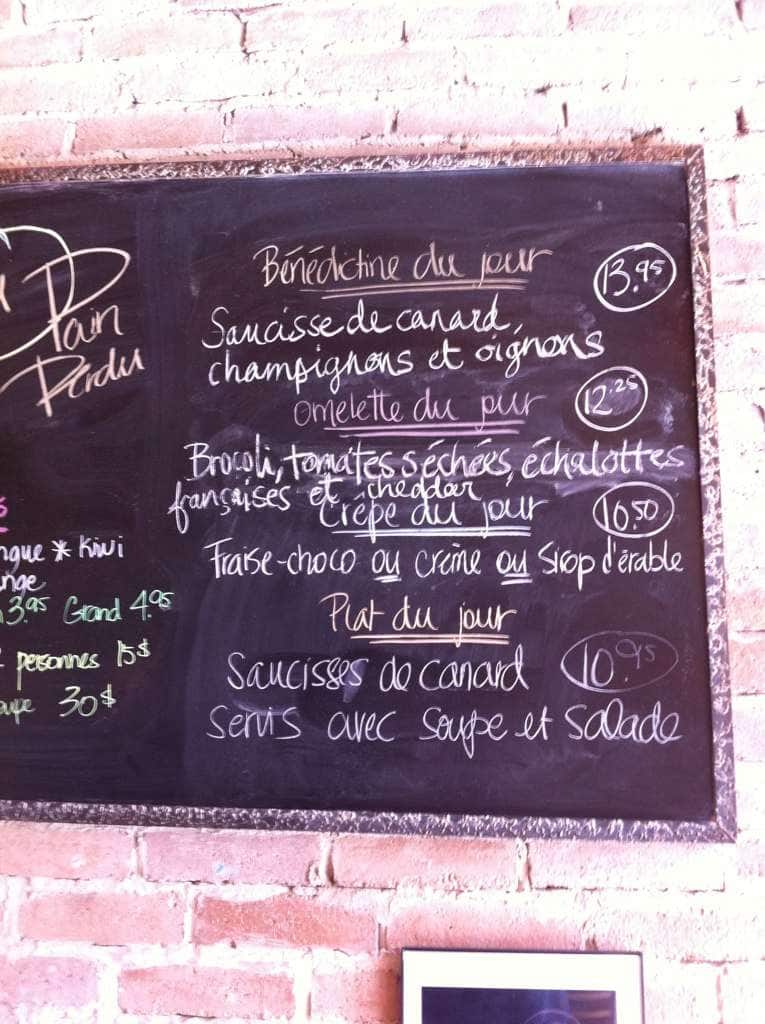 Pain
Perdu
Bénédictine du jour 13.95
Saucisse de canard,
champignons et oignons
omelette du jour 12.25
Brocoli, tomates séchées, échalottes
françaises et cheddar
Crêpe du jour 10.50
Fraise-choco ou crème ou Sirop d'érable
Plat du jour
Saucisses de canard 10.95
Servis avec soupe et salade
ngue * Kiwi
nge
3.95 Grand 4.95
personnes 15$
oupe 30$